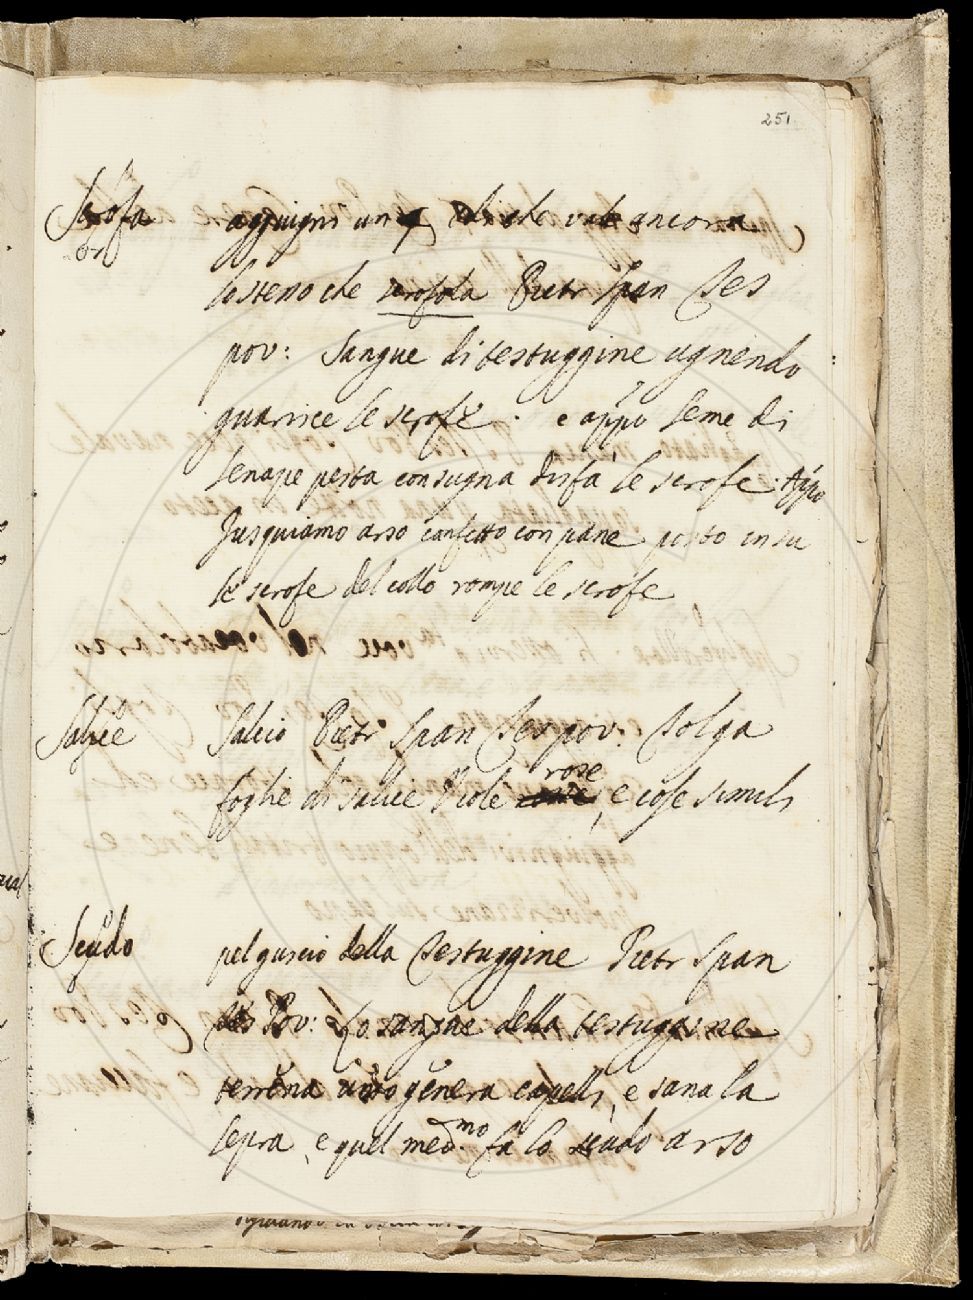 251
Scrofa aggiugni un § e di che vale ancora
lo steno che scrofola Pietr Span Tes
pov: Sangue di testuggine ugnendo
guarisce le scrofe. e appo Seme di
senape pesta con sugna disfà le scrofe. Appo
Jusquiamo arso confetto con pane posto in su
le scrofe del collo rompe le scrofe
Salice Salcio Pietr Span Tes pov: Tolga
foglie di salice Viole rose, e cose simili
Scudo pel guscio della Testuggine Pietr Span
Tes Pov: Lo sangue della testuggine
terrena unto genera capelli, e sana la
lepra, e quel med.mo fa lo scudo arso